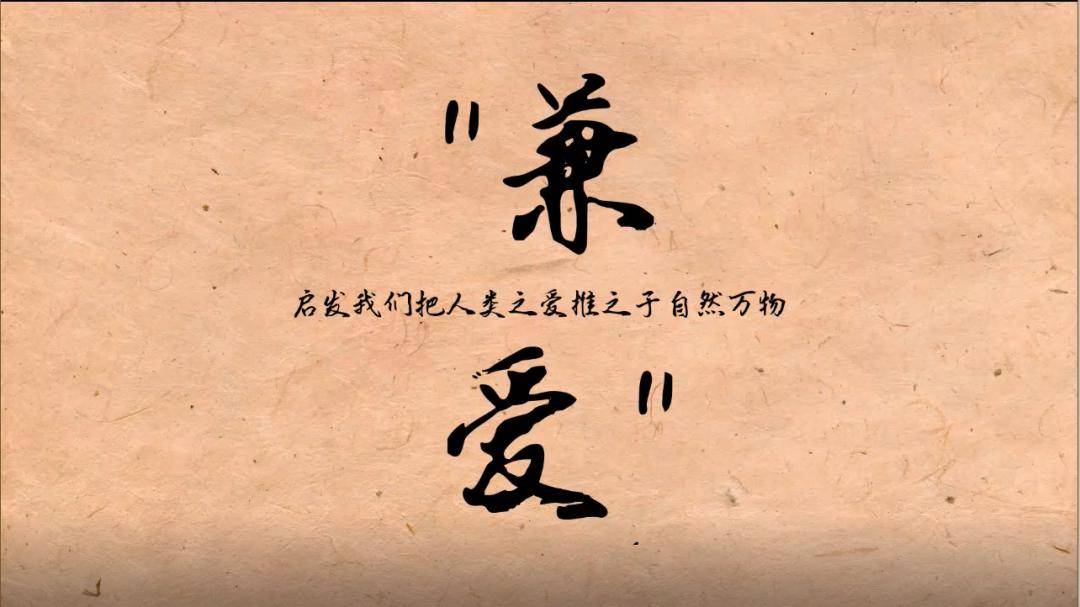 "兼
启发我们把人类之爱推之于自然万物
爱"